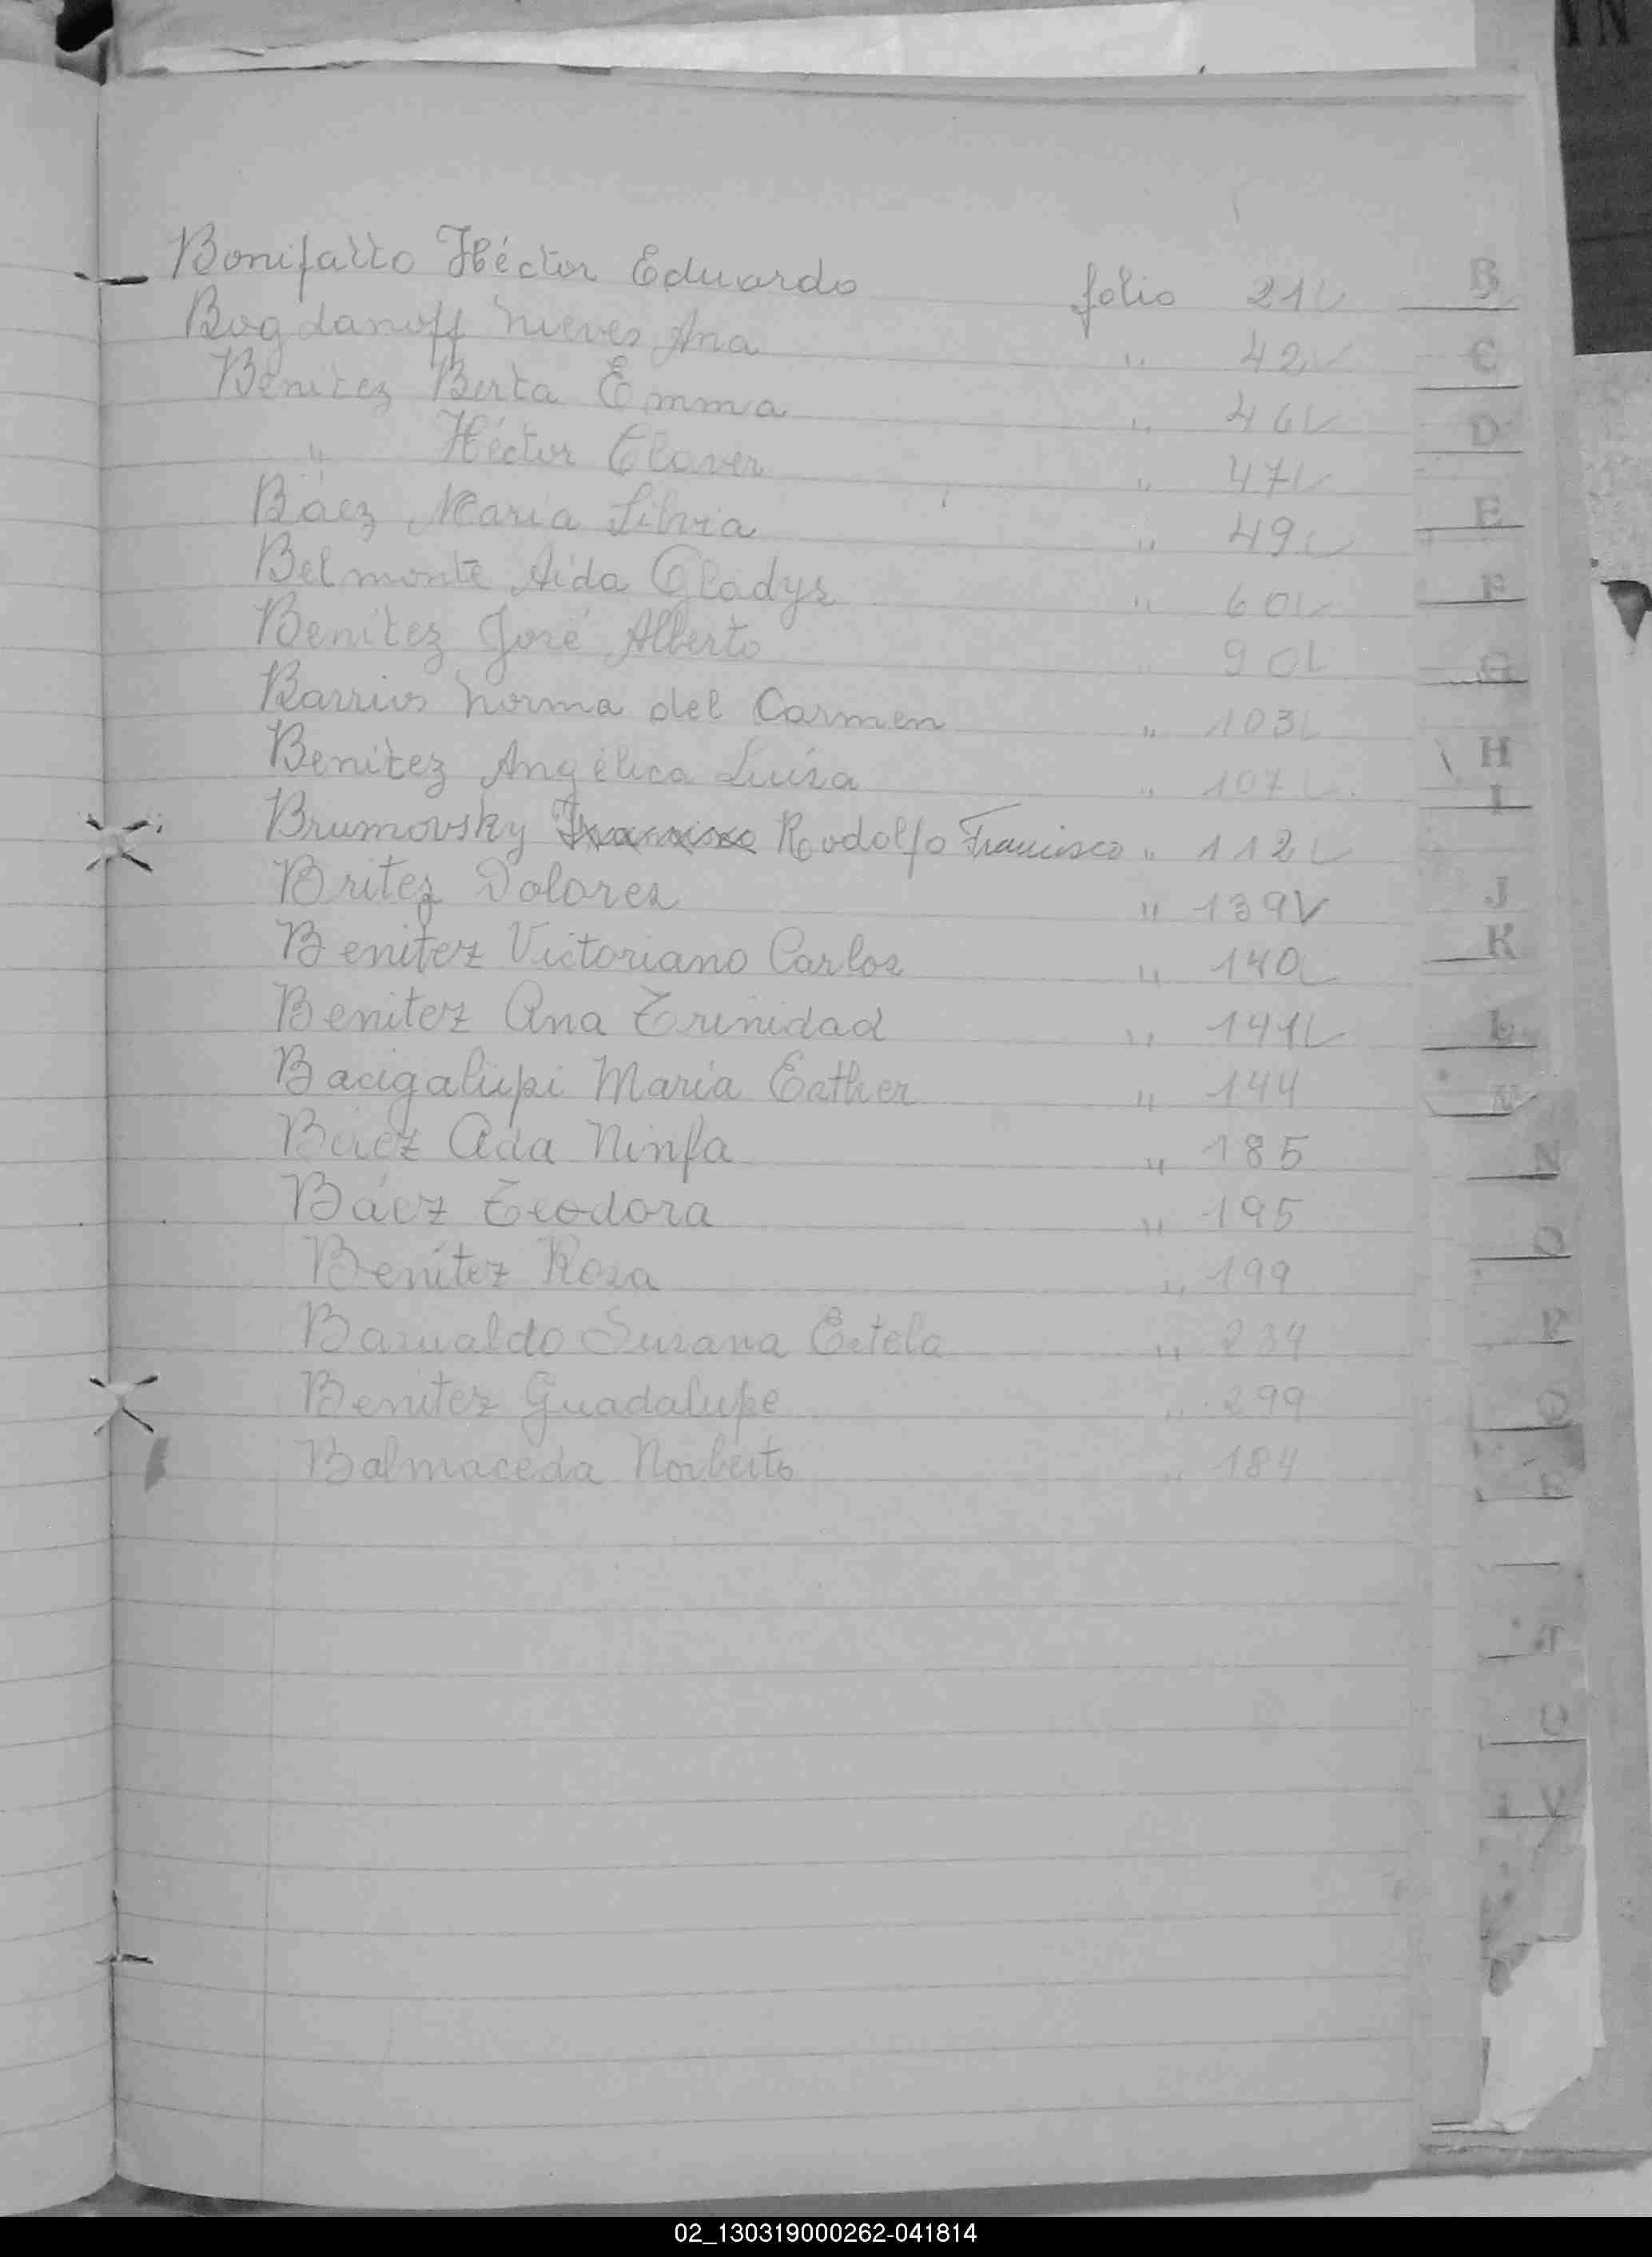 Bonifatto Héctor Eduardo folio 21
Bogdanoff Nieves Ana " 42
Benítez Berta Emma " 46
" Héctor Claver " 47
Báez María Silvia " 49
Belmonte Aída Gladys " 60
Benítez José Alberto 90
Barrios Norma del Carmen " 103
Benítez Angélica Luisa " 107
Brumovsky Francisco Rodolfo Francisco " 112
Britez Dolores " 139
Benitez Victoriano Carlos " 140
Benitez Ana Trinidad " 141
Bacigalupi María Esther " 144
Báez Ada Ninfa " 185
Báez Teodora " 195
Benítez Rosa " 199
Basualdo Susana Estela " 234
Benitez Guadalupe " 299
Balmaceda Norberto " 184
B
C
D
E
F
G
H
I
J
K
L
N
O
P
Q
R
T
U
V
02_130319000262-041814